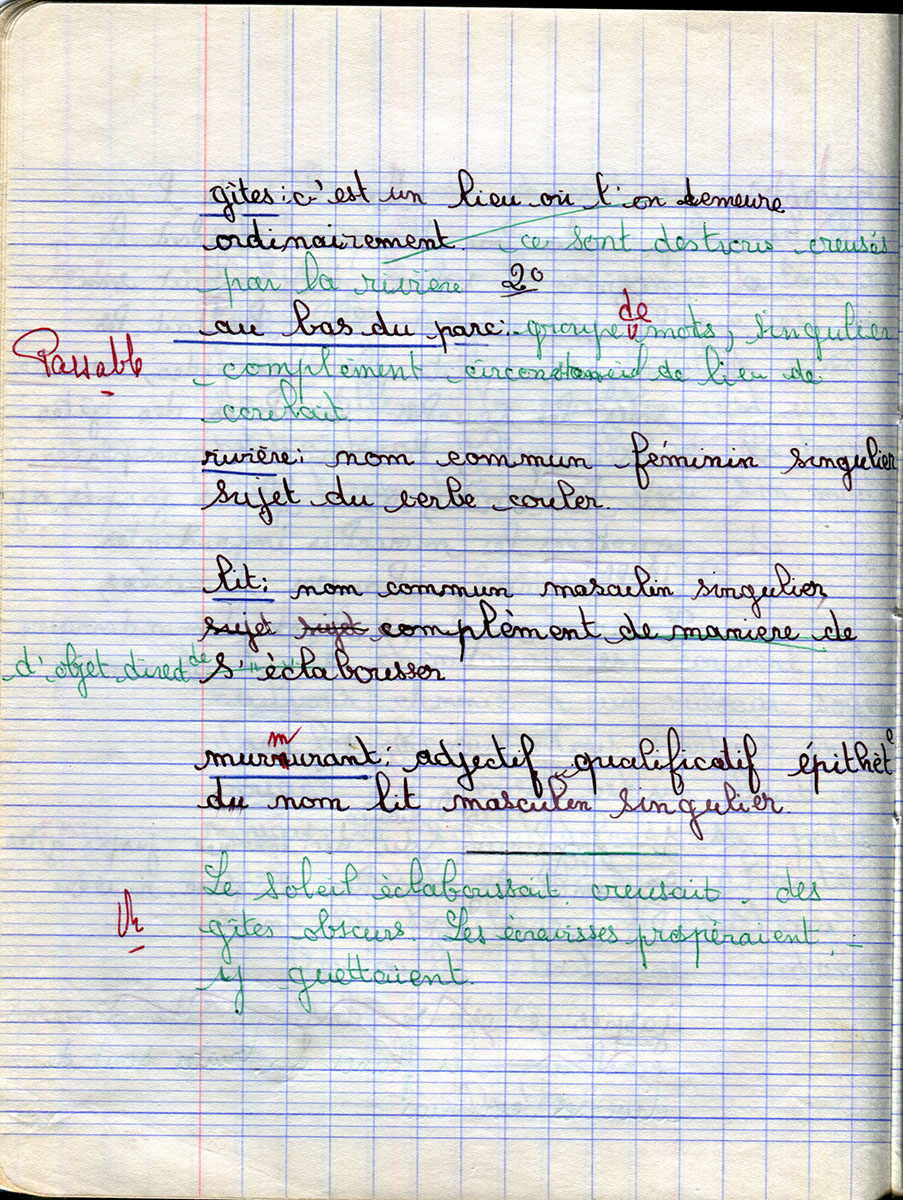 gîtes : c'est un lieu où l'on demeure
ordinairement. ce sont des trous creusés
par la rivière 2°
au bas du parc : groupe de mots, singulier
Passable
complément circonstanciel de lieu de
coulait.
rivière : nom commun féminin singulier
sujet du verbe couler.
lit : nom commun masculin singulier,
sujet sujet complèment de maniere de
d'objet direct de s'éclabousser
m
murmurant : adjectif qualificatif épithète
du nom lit masculin singulier.
Le soleil éclaboussait, creusait. des
Vu
gîtes obscurs. Les écrevisses prospéraient, -
y guettaient.